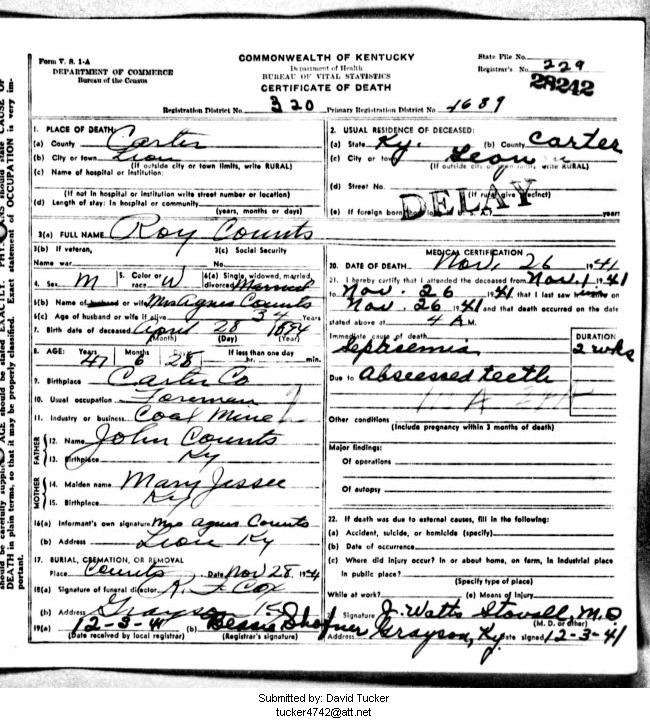 Form V. S. 1-A
DEPARTMENT OF COMMERCE
Bureau of the Census
COMMONWEALTH OF KENTUCKY
Department of Health
BUREAU OF VITAL STATISTICS
CERTIFICATE OF DEATH
State File No.
Registrar's No. 229
28242
Registration District No. 320 Primary Registration District No. 4689
1. PLACE OF DEATH:
(a) County Carter
(b) City or town Leon
(If outside city or town limits, write RURAL)
(c) Name of hospital or institution:
(If not in hospital or institution write street number or location)
(d) Length of stay: In hospital or community
(years, months or days)
2. USUAL RESIDENCE OF DECEASED:
(a) State Ky. (b) County Carter
(c) City or town Leon
(If outside city or town limits, write RURAL)
(d) Street No.
(If rural give precinct)
DELAY
(e) If foreign born years
3(a) FULL NAME Roy Counts
3(b) If veteran, 3(c) Social Security
Name war No.
4. Sex M 5. Color or race W 6(a) Single, widowed, married, divorced Married
6(b) Name of husband or wife Mrs Agnes Counts
6(c) Age of husband or wife if alive 34 Years
7. Birth date of deceased April 28 1894
(Month) (Day) (Year)
8. AGE: Years Months If less than one day
47 6 28 hr. min.
9. Birthplace Carter Co
10. Usual occupation Foreman
11. Industry or business Coal Mine
FATHER
12. Name John Counts
13. Birthplace Ky
MOTHER
14. Maiden name Mary Jessee
15. Birthplace Ky
16(a) Informant's own signature Mrs Agnes Counts
(b) Address Leon Ky
17. BURIAL, CREMATION, OR REMOVAL
Place Counts Date Nov 28, 194
18(a) Signature of funeral director R. F Cox
(b) Address Grayson Ky
19(a) 12-3-41 (b) Bessie
(Date received by local registrar) (Registrar's signature)
MEDICAL CERTIFICATION
20. DATE OF DEATH Nov. 26 1941
21. I hereby certify that I attended the deceased from Nov. 1 1941
to Nov. 26 1941 that I last saw on
Nov. 26 1941 and that death occurred on the date
stated above at 4 A M.
Immediate cause of death DURATION
Septicemia 2 wks
Due to Abscessed teeth
Other conditions
(Include pregnancy within 3 months of death)
Major findings:
Of operations
Of autopsy
22. If death was due to external causes, fill in the following:
(a) Accident, suicide, or homicide (specify)
(b) Date of occurrence
(c) Where did injury occur? In or about home, on farm, in industrial place
in public place?
(Specify type of place)
While at work? (e) Means of injury
Signature J. Watts Stovall, M.D.
(M. D. or other)
Address Grayson, Ky Date signed 12-3-41
Submitted by: David Tucker
tucker4742@att.net